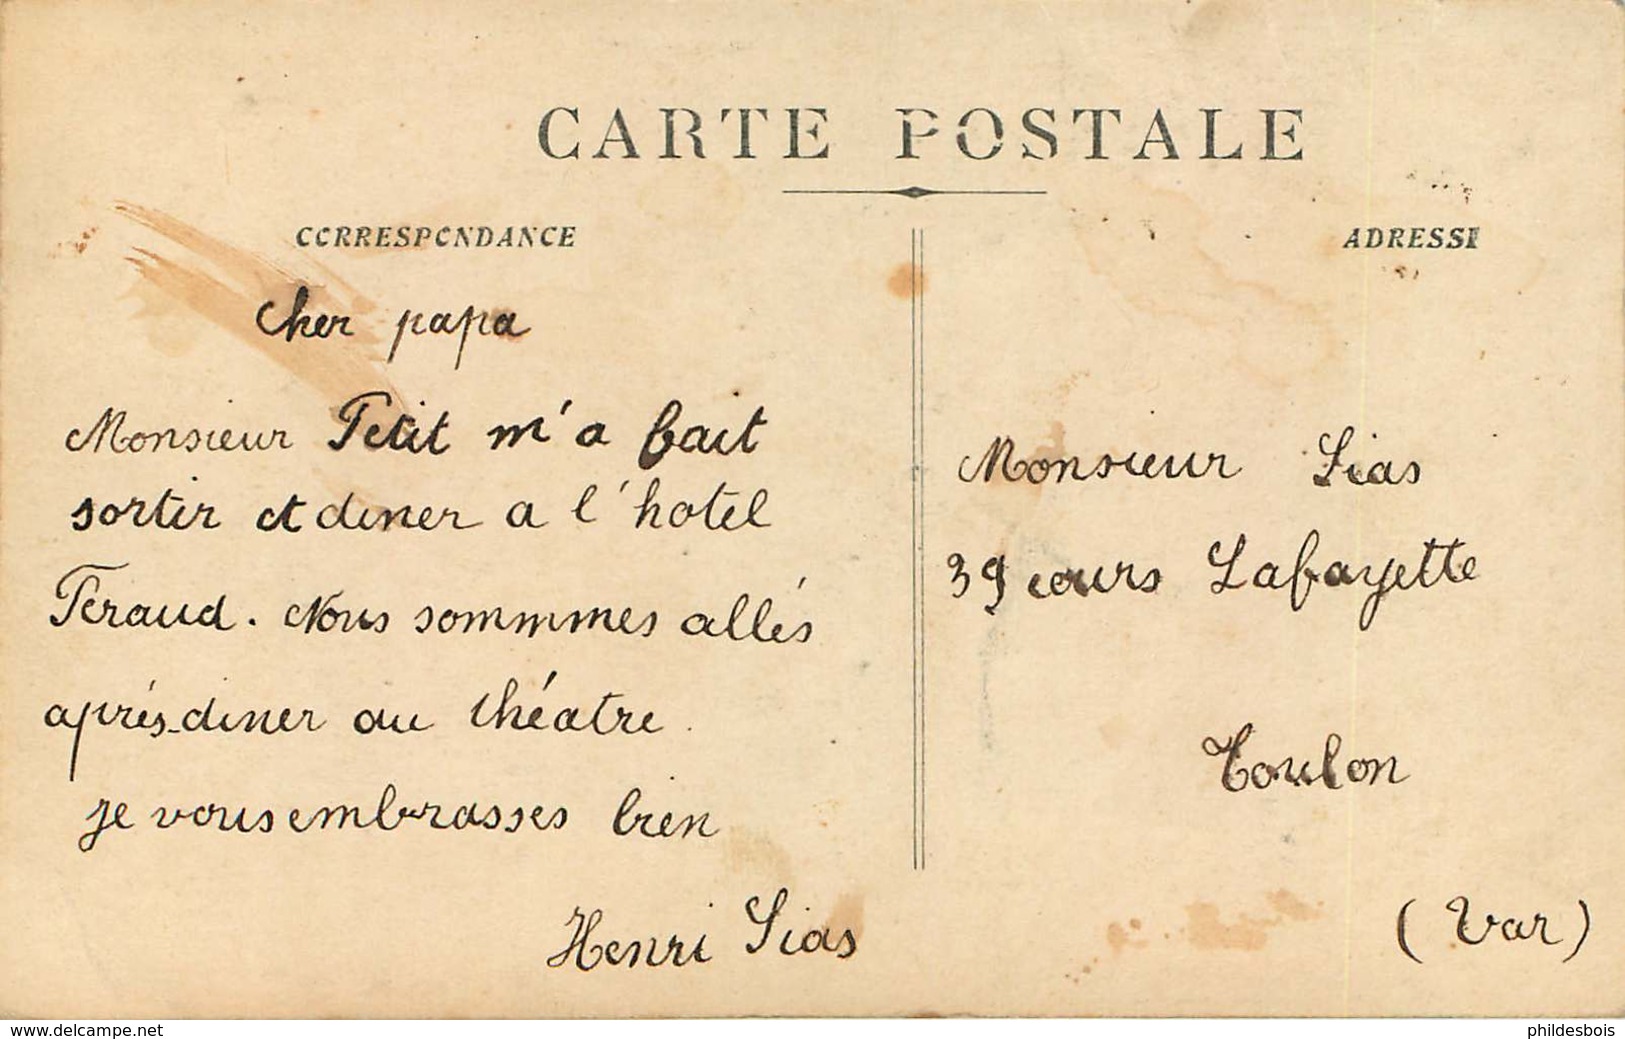 CARTE POSTALE
CORRESPONDANCE
Cher papa
Monsieur Petit m'a fait
sortir et diner a l'hotel
Feraud. Nous sommmes allés
aprés-diner au théatre.
je vous embrasses bien
Henri Sias
ADRESSE
Monsieur Sias
39 cours Lafayette
Toulon
(Var)
www.delcampe.net
phildesbois